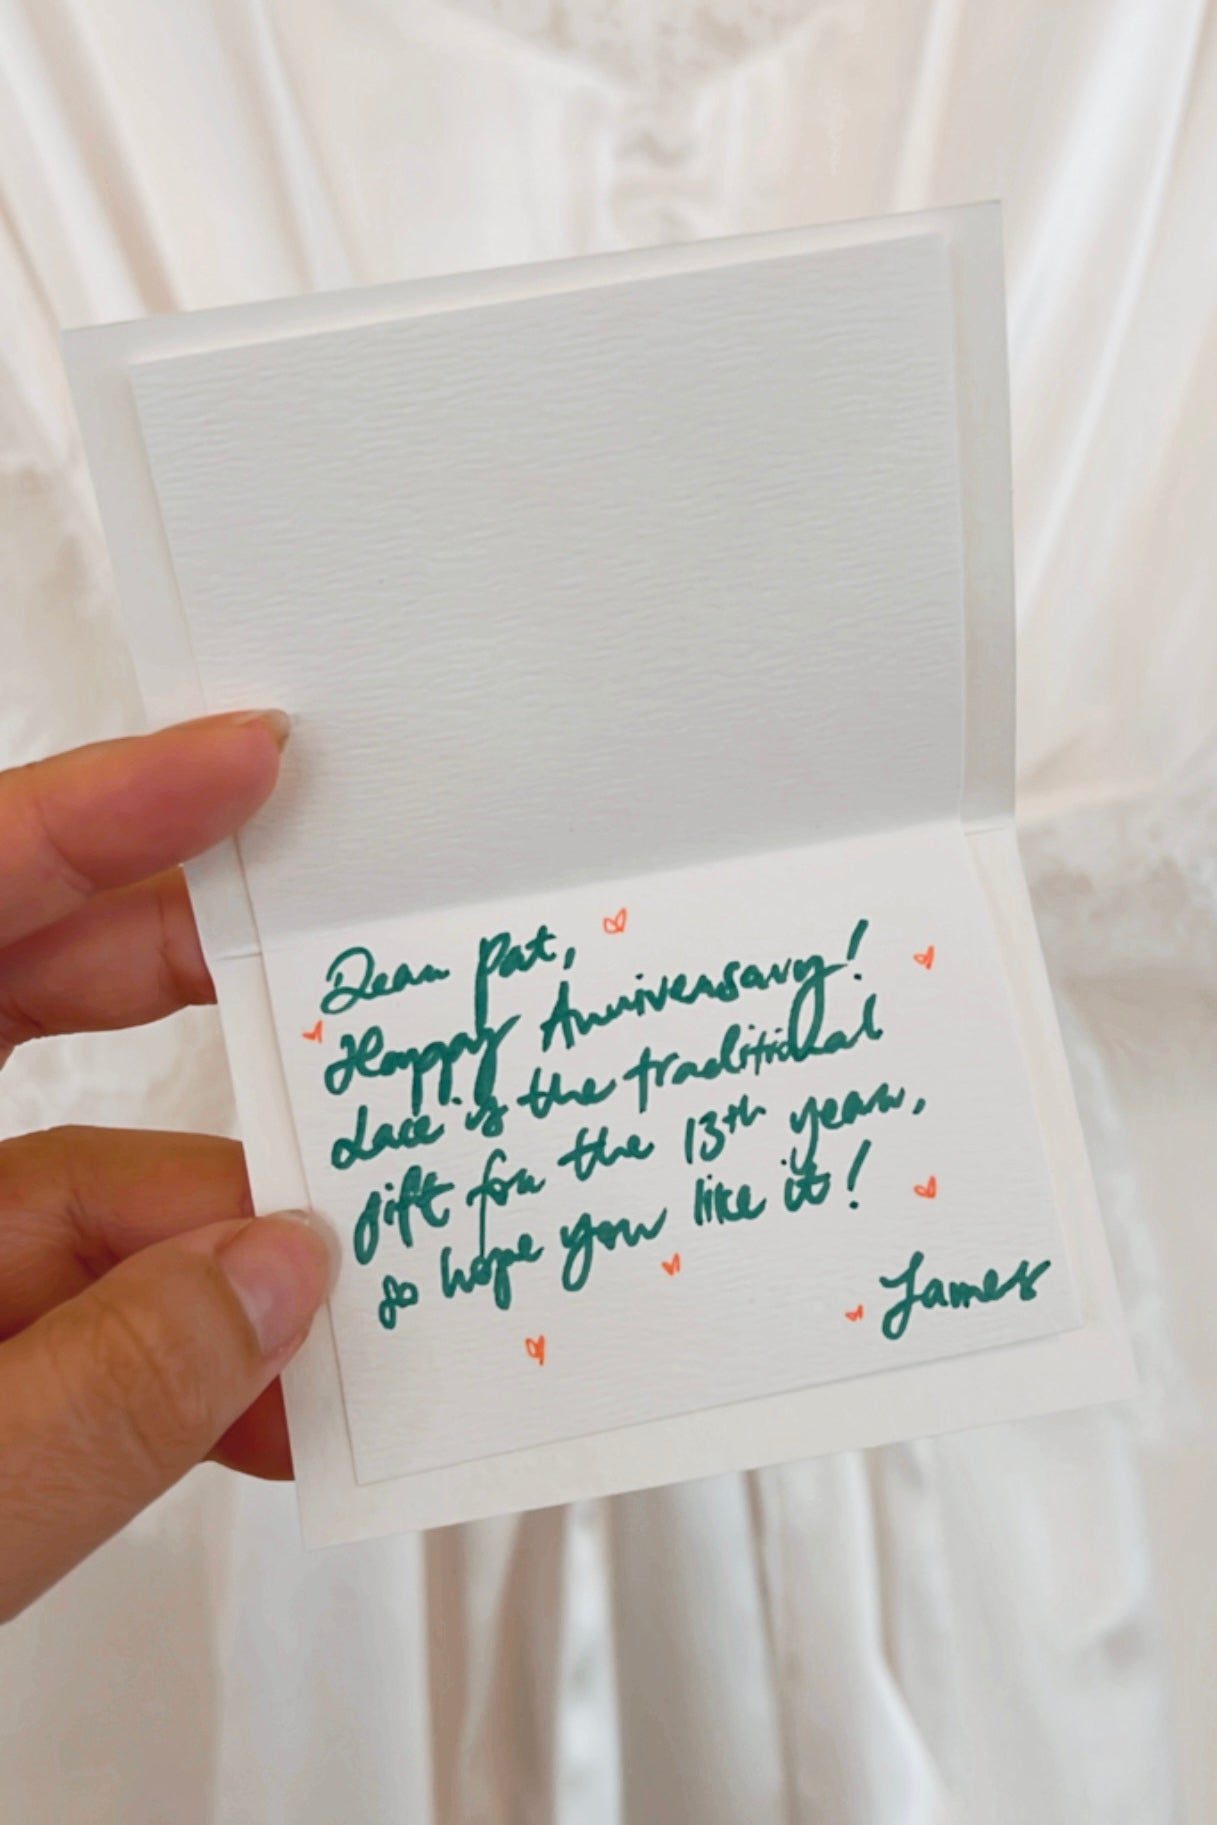 Dear Pat,
Happy Anniversary!
Lace is the traditional
gift for the 13th year,
so hope you like it!
James